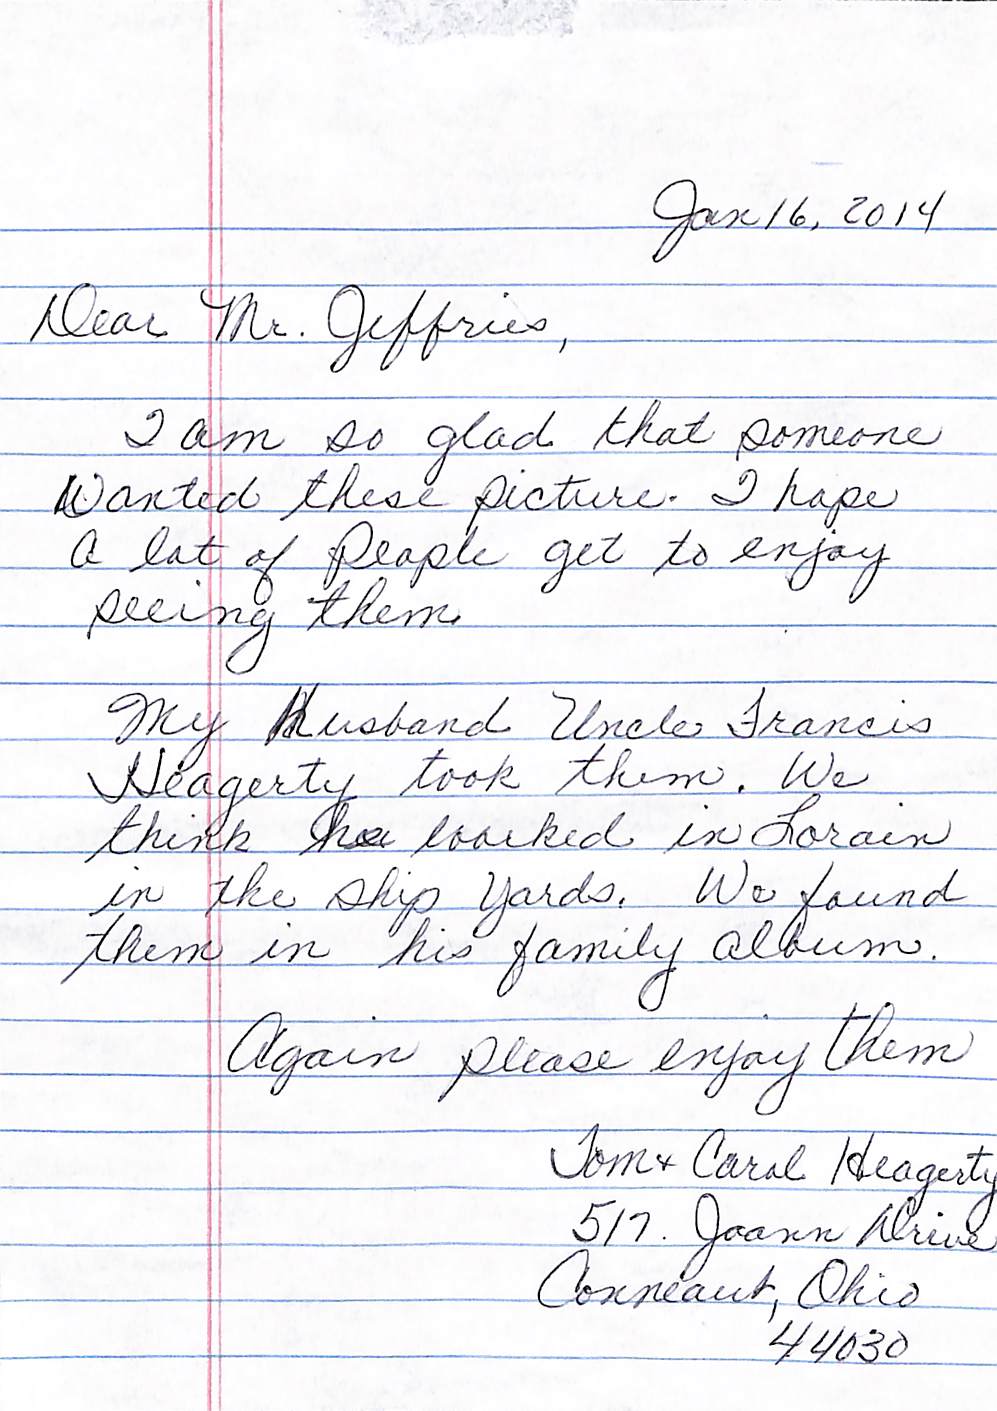 Jan 16, 2014
Dear Mr. Jeffries,
I am so glad that someone
Wanted these picture. I hope
a lot of People get to enjoy
seeing them.
My Husband Uncle Francis
Heagerty took them. We
think he worked in Lorain
in the ship yards. We found
them in his family album.
Again please enjoy them
Tom & Carol Heagerty
517. Joann Drive
Conneaut, Ohio
44030